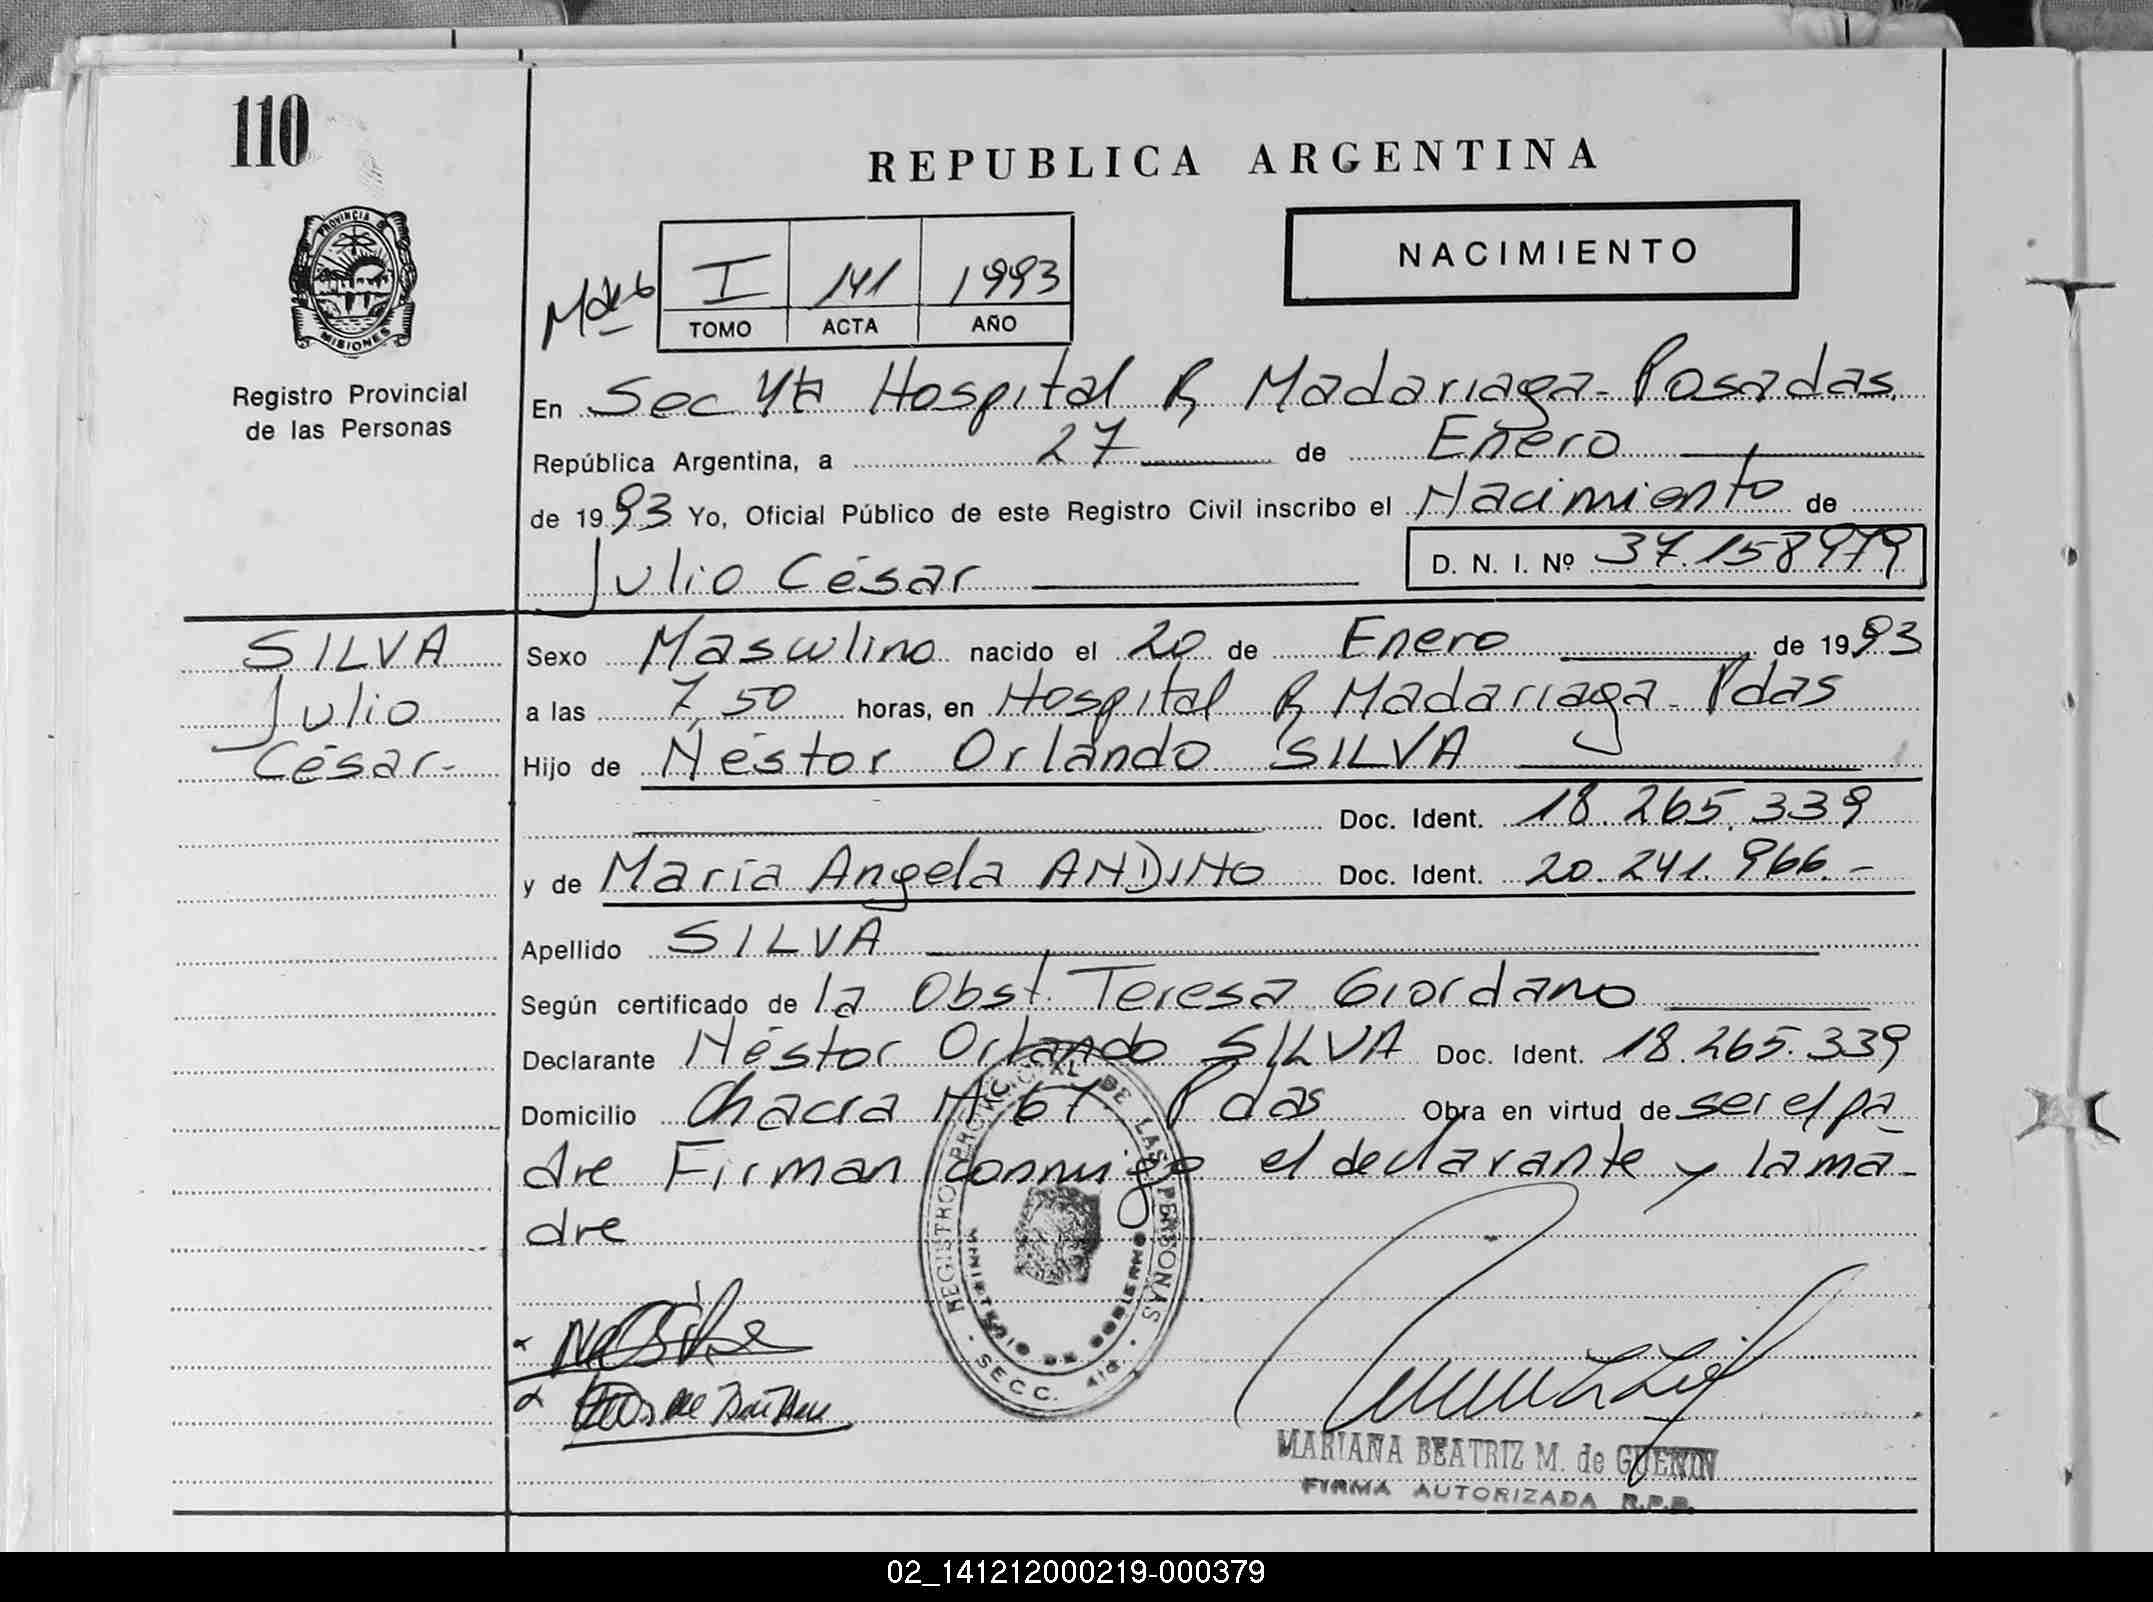 110
REPUBLICA ARGENTINA
PROVINCIA DE
MISIONES
NACIMIENTO
I 141 1993
TOMO ACTA AÑO
Registro Provincial
de las Personas
En Sec 4ta Hospital R Madariaga - Posadas.
República Argentina, a 27 de Enero
de 1993 Yo, Oficial Público de este Registro Civil inscribo el Nacimiento de
Julio César D. N. I. Nº 37.158979
SILVA
Julio
César.-
Sexo Masculino nacido el 20 de Enero de 1993
a las 7,50 horas, en Hospital R Madariaga - Pdas
Hijo de Néstor Orlando SILVA
Doc. Ident. 18.265.339
y de María Angela ANDINO Doc. Ident. 20.241.966.-
Apellido SILVA
Según certificado de la Obst. Teresa Giordano
Declarante Néstor Orlando SILVA Doc. Ident. 18.265.339
Domicilio Chacra Nº 67. Pdas Obra en virtud de ser el pa
dre Firman conmigo el declarante y la ma-
dre
REGISTRO PROVINCIAL DE LAS PERSONAS
MINISTERIO DE GOBIERNO
SECC. 4ta
MARIANA BEATRIZ M. de GUENIN
FIRMA AUTORIZADA R.P.P.
02_141212000219-000379